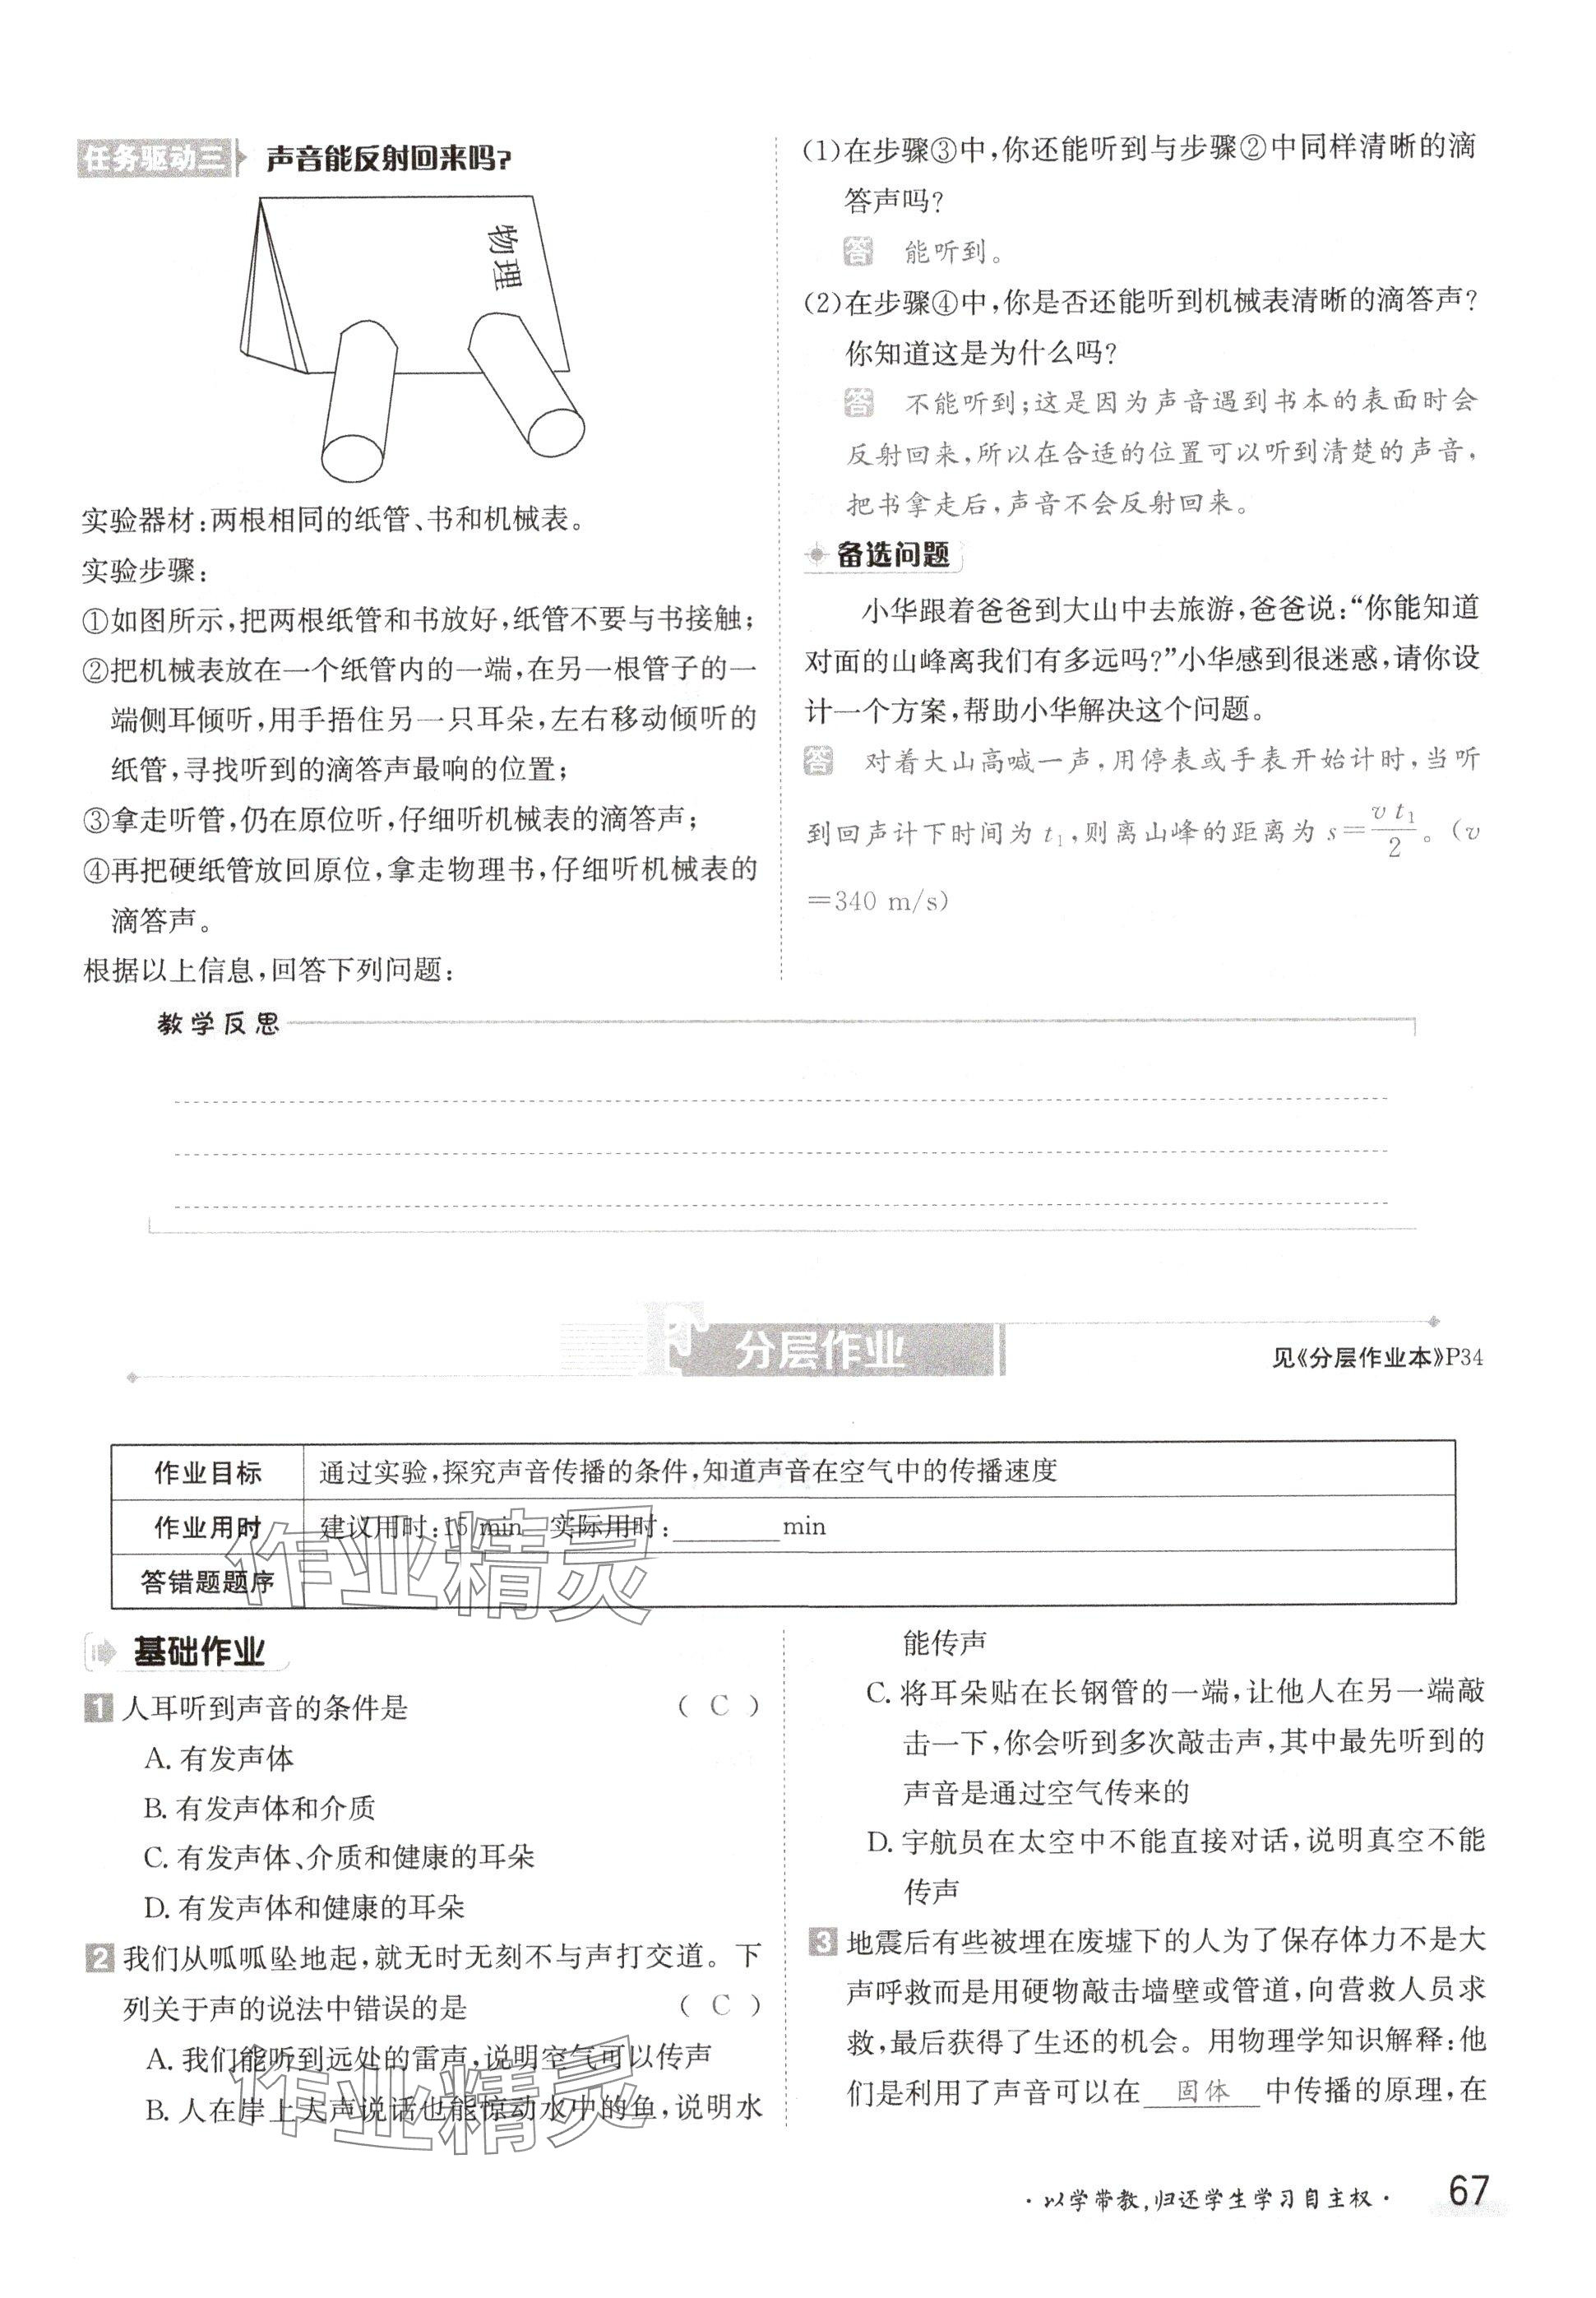 任务驱动三 声音能反射回来吗?
物理
实验器材:两根相同的纸管、书和机械表。
实验步骤:
①如图所示,把两根纸管和书放好,纸管不要与书接触;
②把机械表放在一个纸管内的一端,在另一根管子的一
端侧耳倾听,用手捂住另一只耳朵,左右移动倾听的
纸管,寻找听到的滴答声最响的位置;
③拿走听管,仍在原位听,仔细听机械表的滴答声;
④再把硬纸管放回原位,拿走物理书,仔细听机械表的
滴答声。
根据以上信息,回答下列问题:
(1)在步骤③中,你还能听到与步骤②中同样清晰的滴
答声吗?
答 能听到。
(2)在步骤④中,你是否还能听到机械表清晰的滴答声?
你知道这是为什么吗?
答 不能听到;这是因为声音遇到书本的表面时会
反射回来,所以在合适的位置可以听到清楚的声音,
把书拿走后,声音不会反射回来。
备选问题
小华跟着爸爸到大山中去旅游,爸爸说:“你能知道
对面的山峰离我们有多远吗?”小华感到很迷惑,请你设
计一个方案,帮助小华解决这个问题。
答 对着大山高喊一声,用停表或手表开始计时,当听
到回声计下时间为 t₁,则离山峰的距离为 s=vt₁/2。(v
=340 m/s)
教学反思
分层作业
见《分层作业本》P34
作业目标 通过实验,探究声音传播的条件,知道声音在空气中的传播速度
作业用时 建议用时:15 min 实际用时:________min
答错题题序
基础作业
1 人耳听到声音的条件是 ( C )
A. 有发声体
B. 有发声体和介质
C. 有发声体、介质和健康的耳朵
D. 有发声体和健康的耳朵
2 我们从呱呱坠地起,就无时无刻不与声打交道。下
列关于声的说法中错误的是 ( C )
A. 我们能听到远处的雷声,说明空气可以传声
B. 人在岸上大声说话也能惊动水中的鱼,说明水
能传声
C. 将耳朵贴在长钢管的一端,让他人在另一端敲
击一下,你会听到多次敲击声,其中最先听到的
声音是通过空气传来的
D. 宇航员在太空中不能直接对话,说明真空不能
传声
3 地震后有些被埋在废墟下的人为了保存体力不是大
声呼救而是用硬物敲击墙壁或管道,向营救人员求
救,最后获得了生还的机会。用物理学知识解释:他
们是利用了声音可以在 固体 中传播的原理,在
作业精灵
作业精灵
·以学带教,归还学生学习自主权·
67